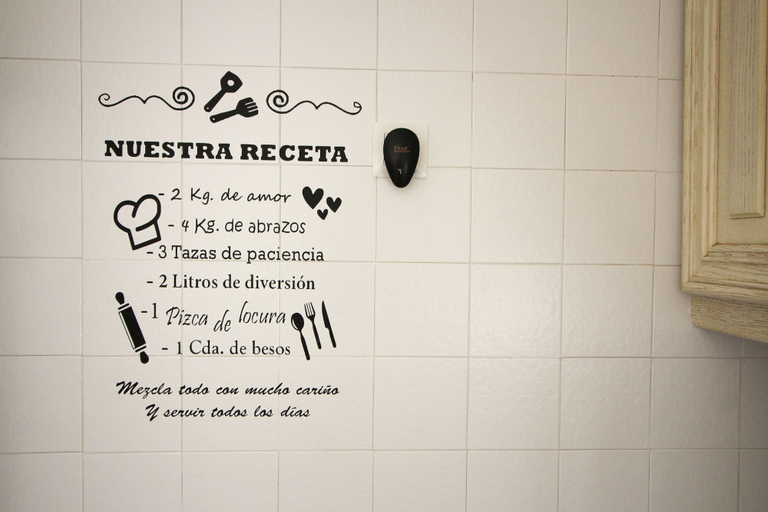 NUESTRA RECETA
- 2 Kg. de amor
- 4 Kg. de abrazos
- 3 Tazas de paciencia
- 2 Litros de diversión
-1 Pizca de locura
- 1 Cda. de besos
Mezcla todo con mucho cariño
Y servir todos los días